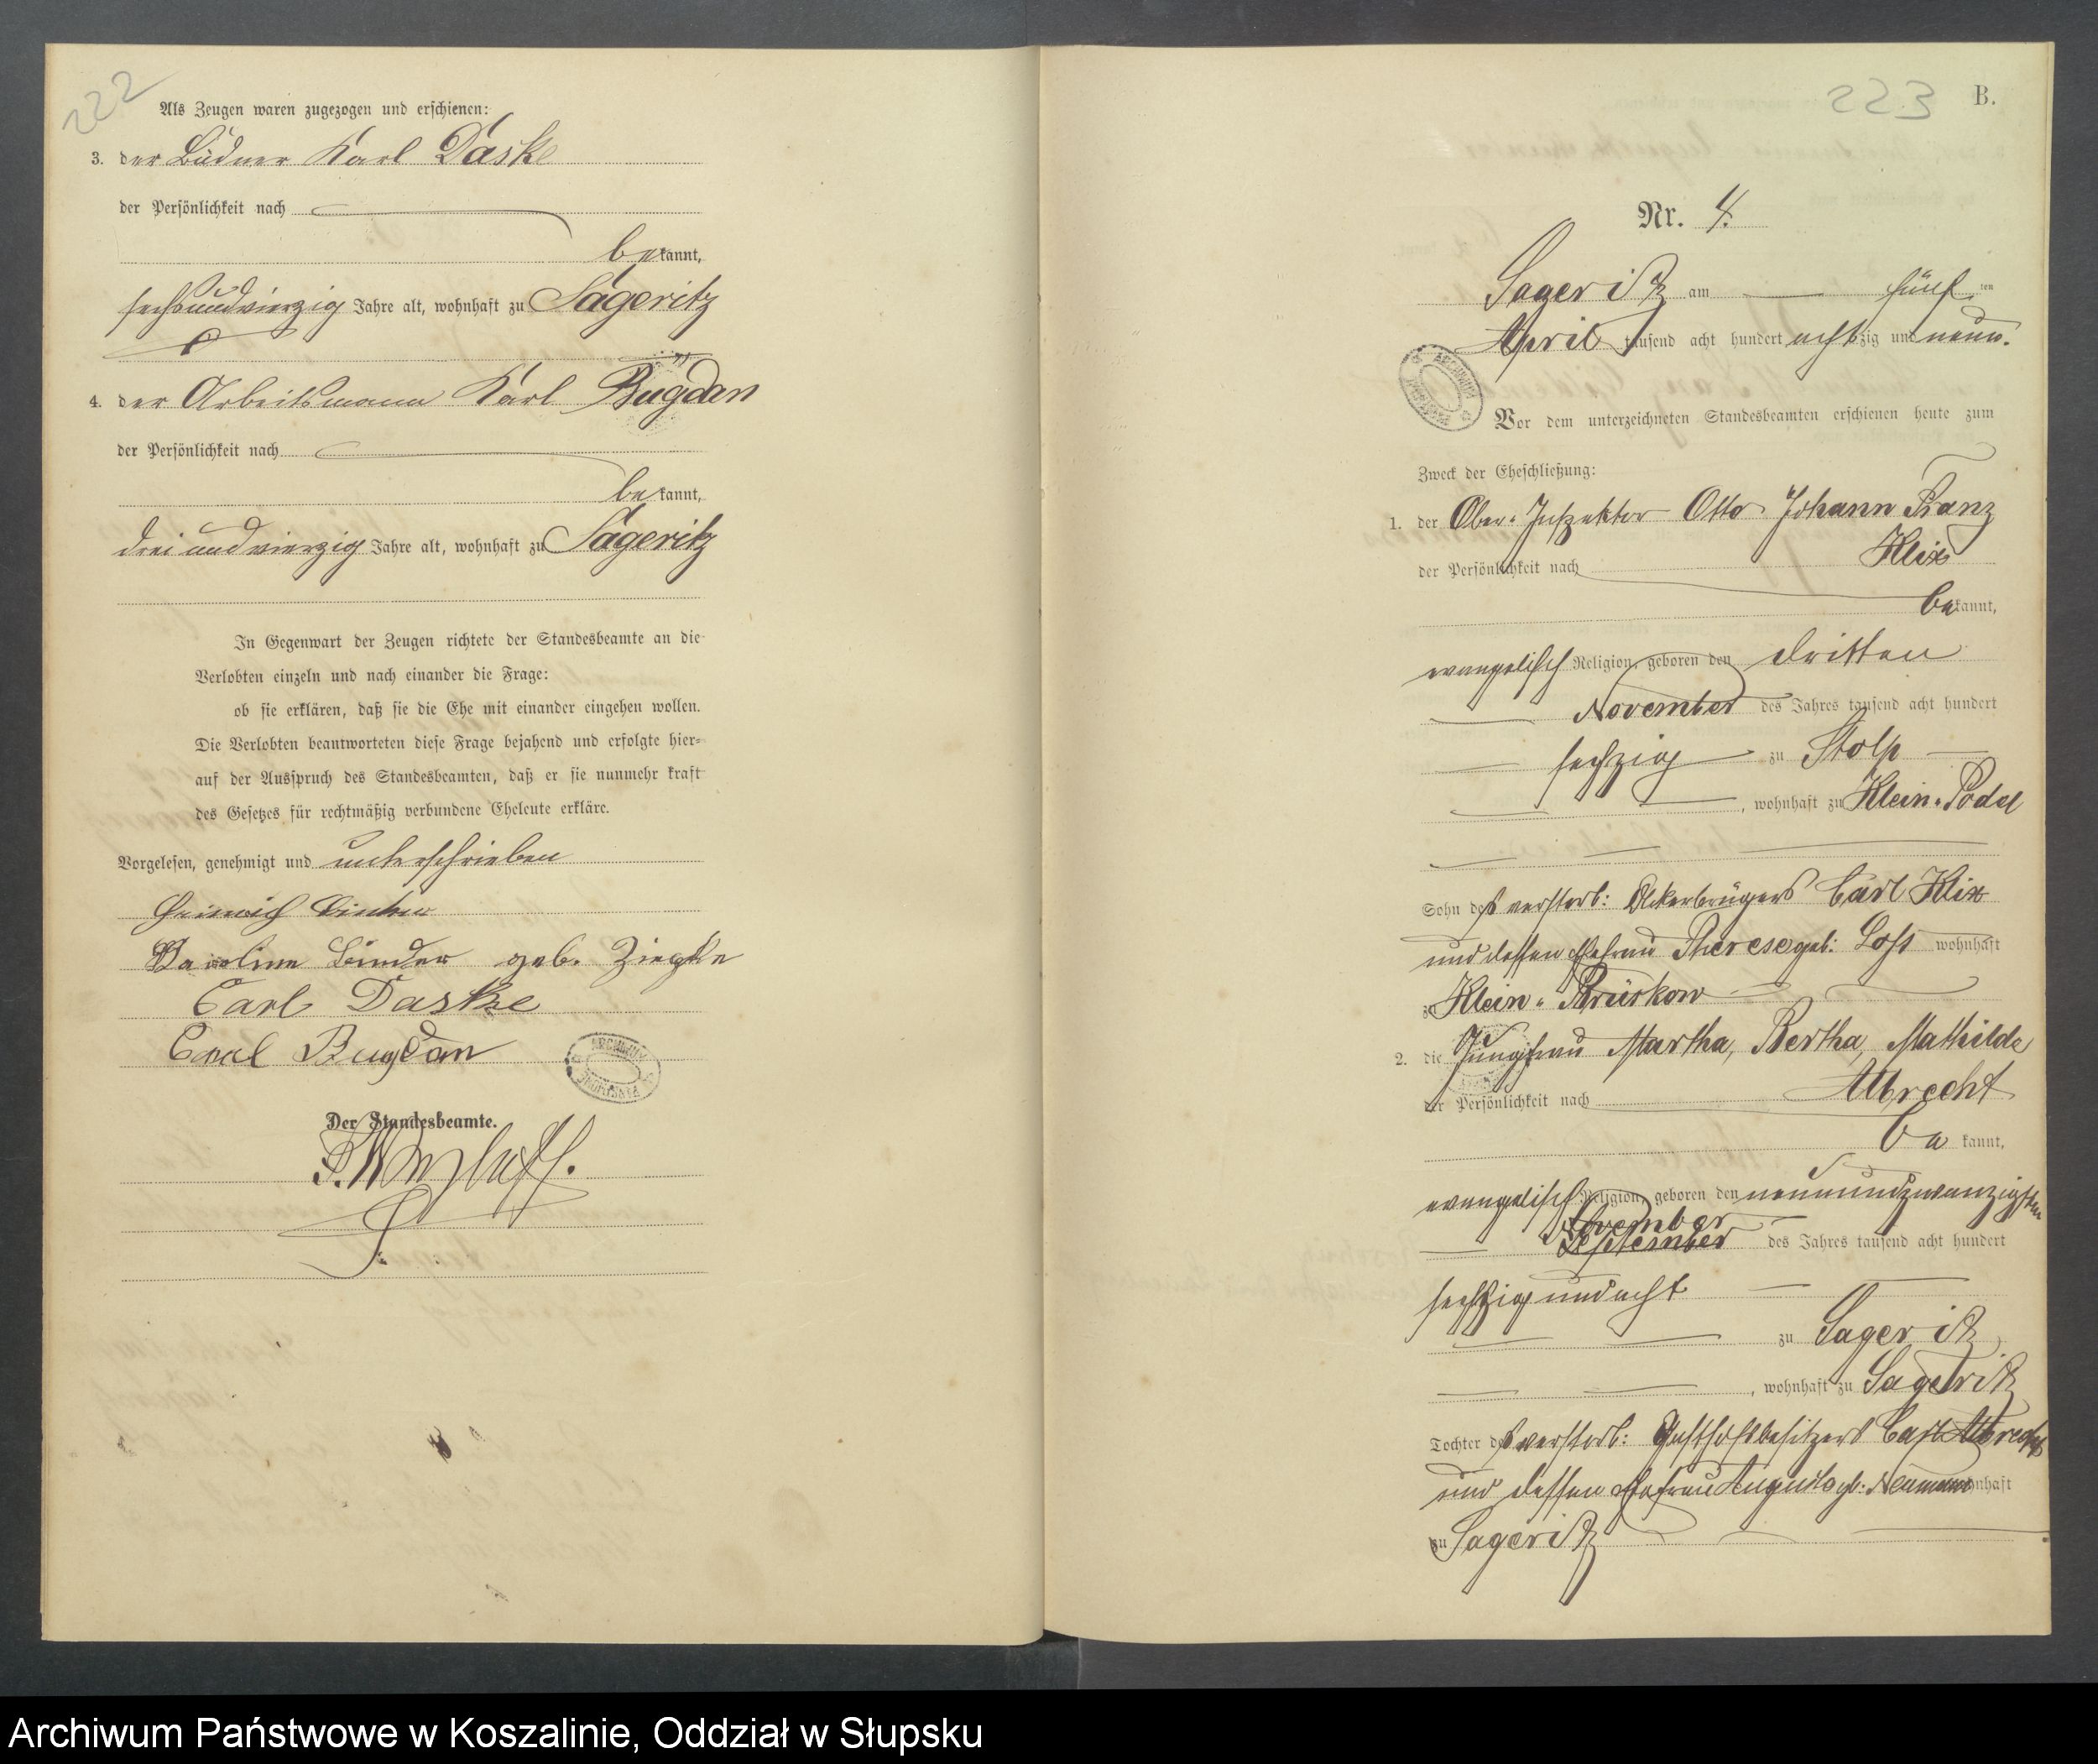 222
Als Zeugen waren zugezogen und erschienen:
3. der Büdner Karl Daske
der Persönlichkeit nach
bekannt,
sechsundvierzig Jahre alt, wohnhaft zu Sageritz
4. der Arbeitsmann Karl Bugdan
der Persönlichkeit nach
bekannt,
dreiundvierzig Jahre alt, wohnhaft zu Sageritz
In Gegenwart der Zeugen richtete der Standesbeamte an die
Verlobten einzeln und nach einander die Frage:
ob sie erklären, daß sie die Ehe mit einander eingehen wollen.
Die Verlobten beantworteten diese Frage bejahend und erfolgte hier-
auf der Ausspruch des Standesbeamten, daß er sie nunmehr kraft
des Gesetzes für rechtmäßig verbundene Eheleute erkläre.
Vorgelesen, genehmigt und unterschrieben
Heinrich
geb.
Carl Daske
Carl Bugdan
Der Standesbeamte.
223 B.
Nr. 4.
Sageritz am fünf ten
April tausend acht hundert achtzig und neun.
Vor dem unterzeichneten Standesbeamten erschienen heute zum
Zweck der Eheschließung:
1. der Ober-Inspektor Otto Johann Franz
Klix
der Persönlichkeit nach
bekannt,
evangelisch Religion, geboren den dritten
November des Jahres tausend acht hundert
sechzig zu Stolp
, wohnhaft zu Klein-Podel
Sohn des verstorb: Ackerbürgers Carl Klix
und dessen Ehefrau Therese geb: wohnhaft
zu Klein-
2. die Jungfrau Martha, Bertha, Mathilde
Albrecht
der Persönlichkeit nach
bekannt,
evangelisch Religion, geboren den neunundzwanzigsten
November
September des Jahres tausend acht hundert
sechzig und acht
zu Sageritz
, wohnhaft zu Sageritz
Tochter des verstorb: Gasthofbesitzers Carl Albrecht
und dessen Ehefrau Auguste geb: Neumann wohnhaft
zu Sageritz
Archiwum Państwowe w Koszalinie, Oddział w Słupsku